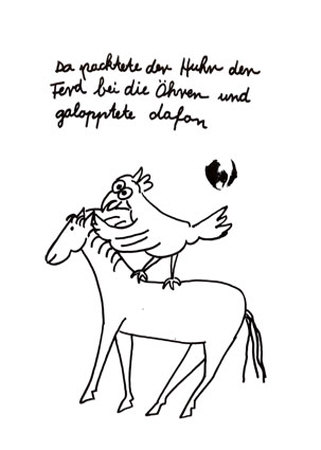 Da packtete der Huhn den
Ferd bei die Öhren und
galopptete dafon